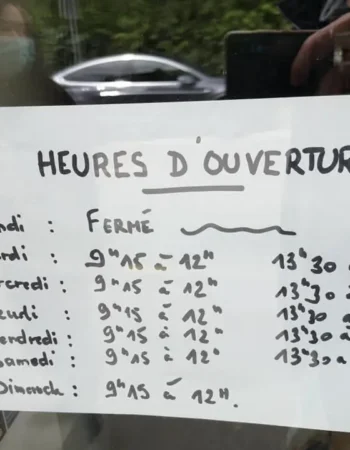 HEURES D'OUVERTUR
ndi : FERMÉ
rdi : 9H15 à 12H 13H30 à
rcredi : 9H15 à 12H 13H30 à
eudi : 9H15 à 12H 13H30 à
endredi : 9H15 à 12H 13H30 à
samedi : 9H15 à 12H 13H30 à
Dimanche : 9H15 à 12H.